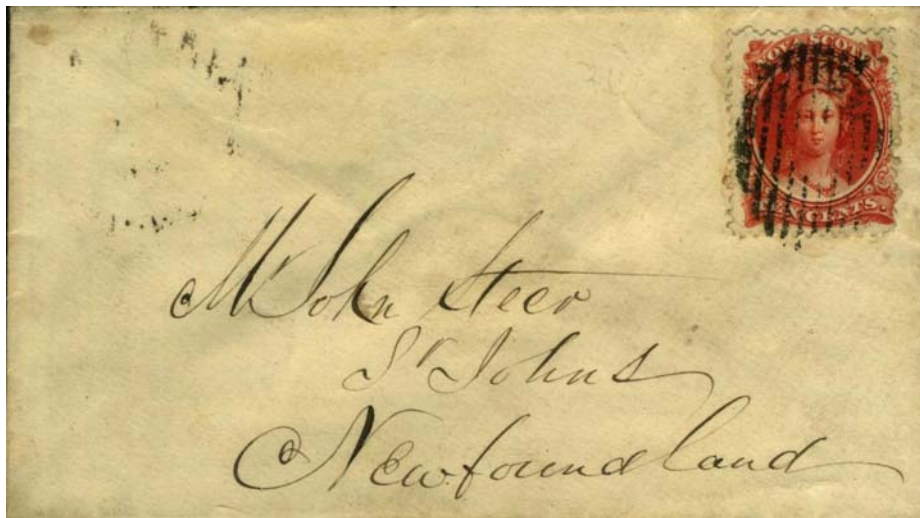 NOVA SCOTIA
TEN CENTS.
Mr John Steer
St Johns
Newfoundland